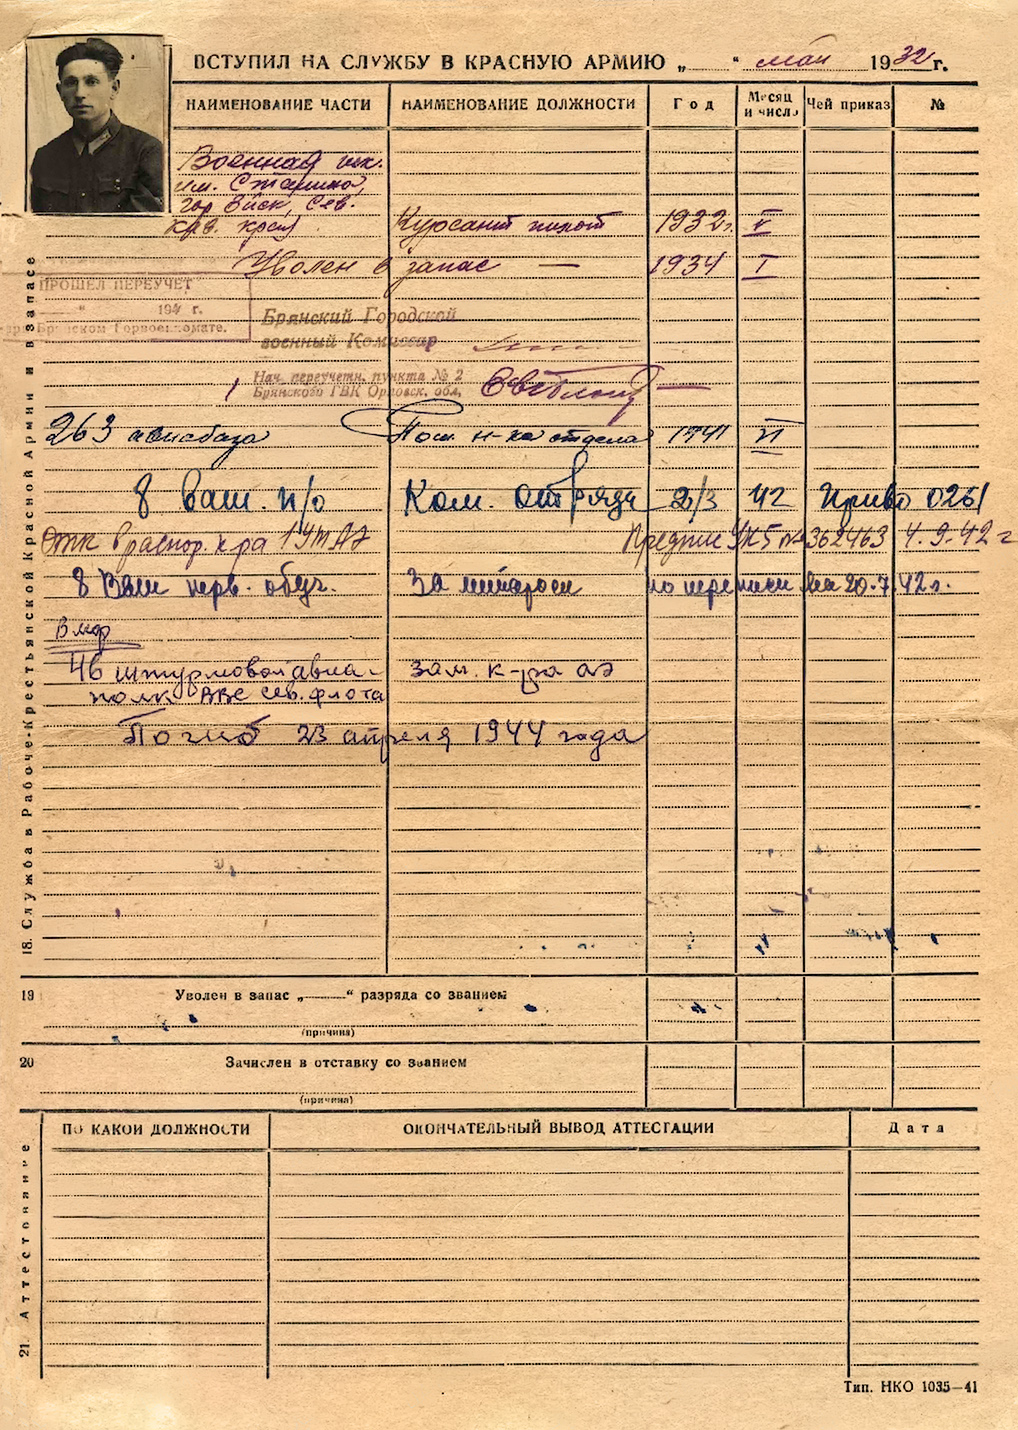 ВСТУПИЛ НА СЛУЖБУ В КРАСНУЮ АРМИЮ „ “ май 1932 г.
НАИМЕНОВАНИЕ ЧАСТИ НАИМЕНОВАНИЕ ДОЛЖНОСТИ Год Месяц и число Чей приказ №
Военная шк.
им. Сталина,
гор Ейск, Сев.
Кав. край Курсант пилот 1932 г. V
Уволен в запас — 1934 I
ПРОШЕЛ ПЕРЕУЧЕТ
„ “ 194 г.
Брянском Горвоенкомате.
Брянский Городской
военный Комиссар
Нач. переучетн. пункта № 2
Брянского ГВК Орловск. обл.
263 авиабаза Пом. н-ка отдела 1941 VI
8 ваш. п/о Ком. отряда 2/3 42 Приво 0261
Отк в распор. к-ра 1 УТАЭ Предпис УК5 № 362463 4.9.42 г
8 Ваш перв. обуч. За по переписи на 20.7.42 г.
Вмф
46 штурмовой авиа-
полк ВВС Сев. флота зам. к-ра аэ
Погиб 23 апреля 1944 года
18. Служба в Рабоче-Крестьянской Красной Армии и в запасе
19 Уволен в запас „ “ разряда со званием
(причина)
20 Зачислен в отставку со званием
(причина)
21. Аттестование
ПО КАКОЙ ДОЛЖНОСТИ ОКОНЧАТЕЛЬНЫЙ ВЫВОД АТТЕСТАЦИИ Дата
Тип. НКО 1035—41